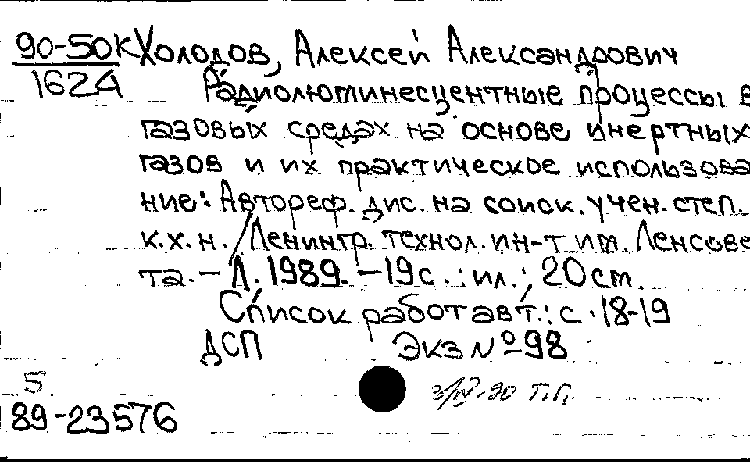 90-50К Холодов, Алексей Александрович
162А Радиолюминесцентные процессы в
газовых средах на основе инертных
газов и их практическое использова
ние: Автореф. дис. на соиск. учен. степ.
к.х.н. / Ленингр. технол. ин-т им. Ленсове
та. – Л. 1989. – 19 с. : ил.; 20 см.
Список работ авт.: с. 18-19
ДСП Экз № 98
5
89-23576